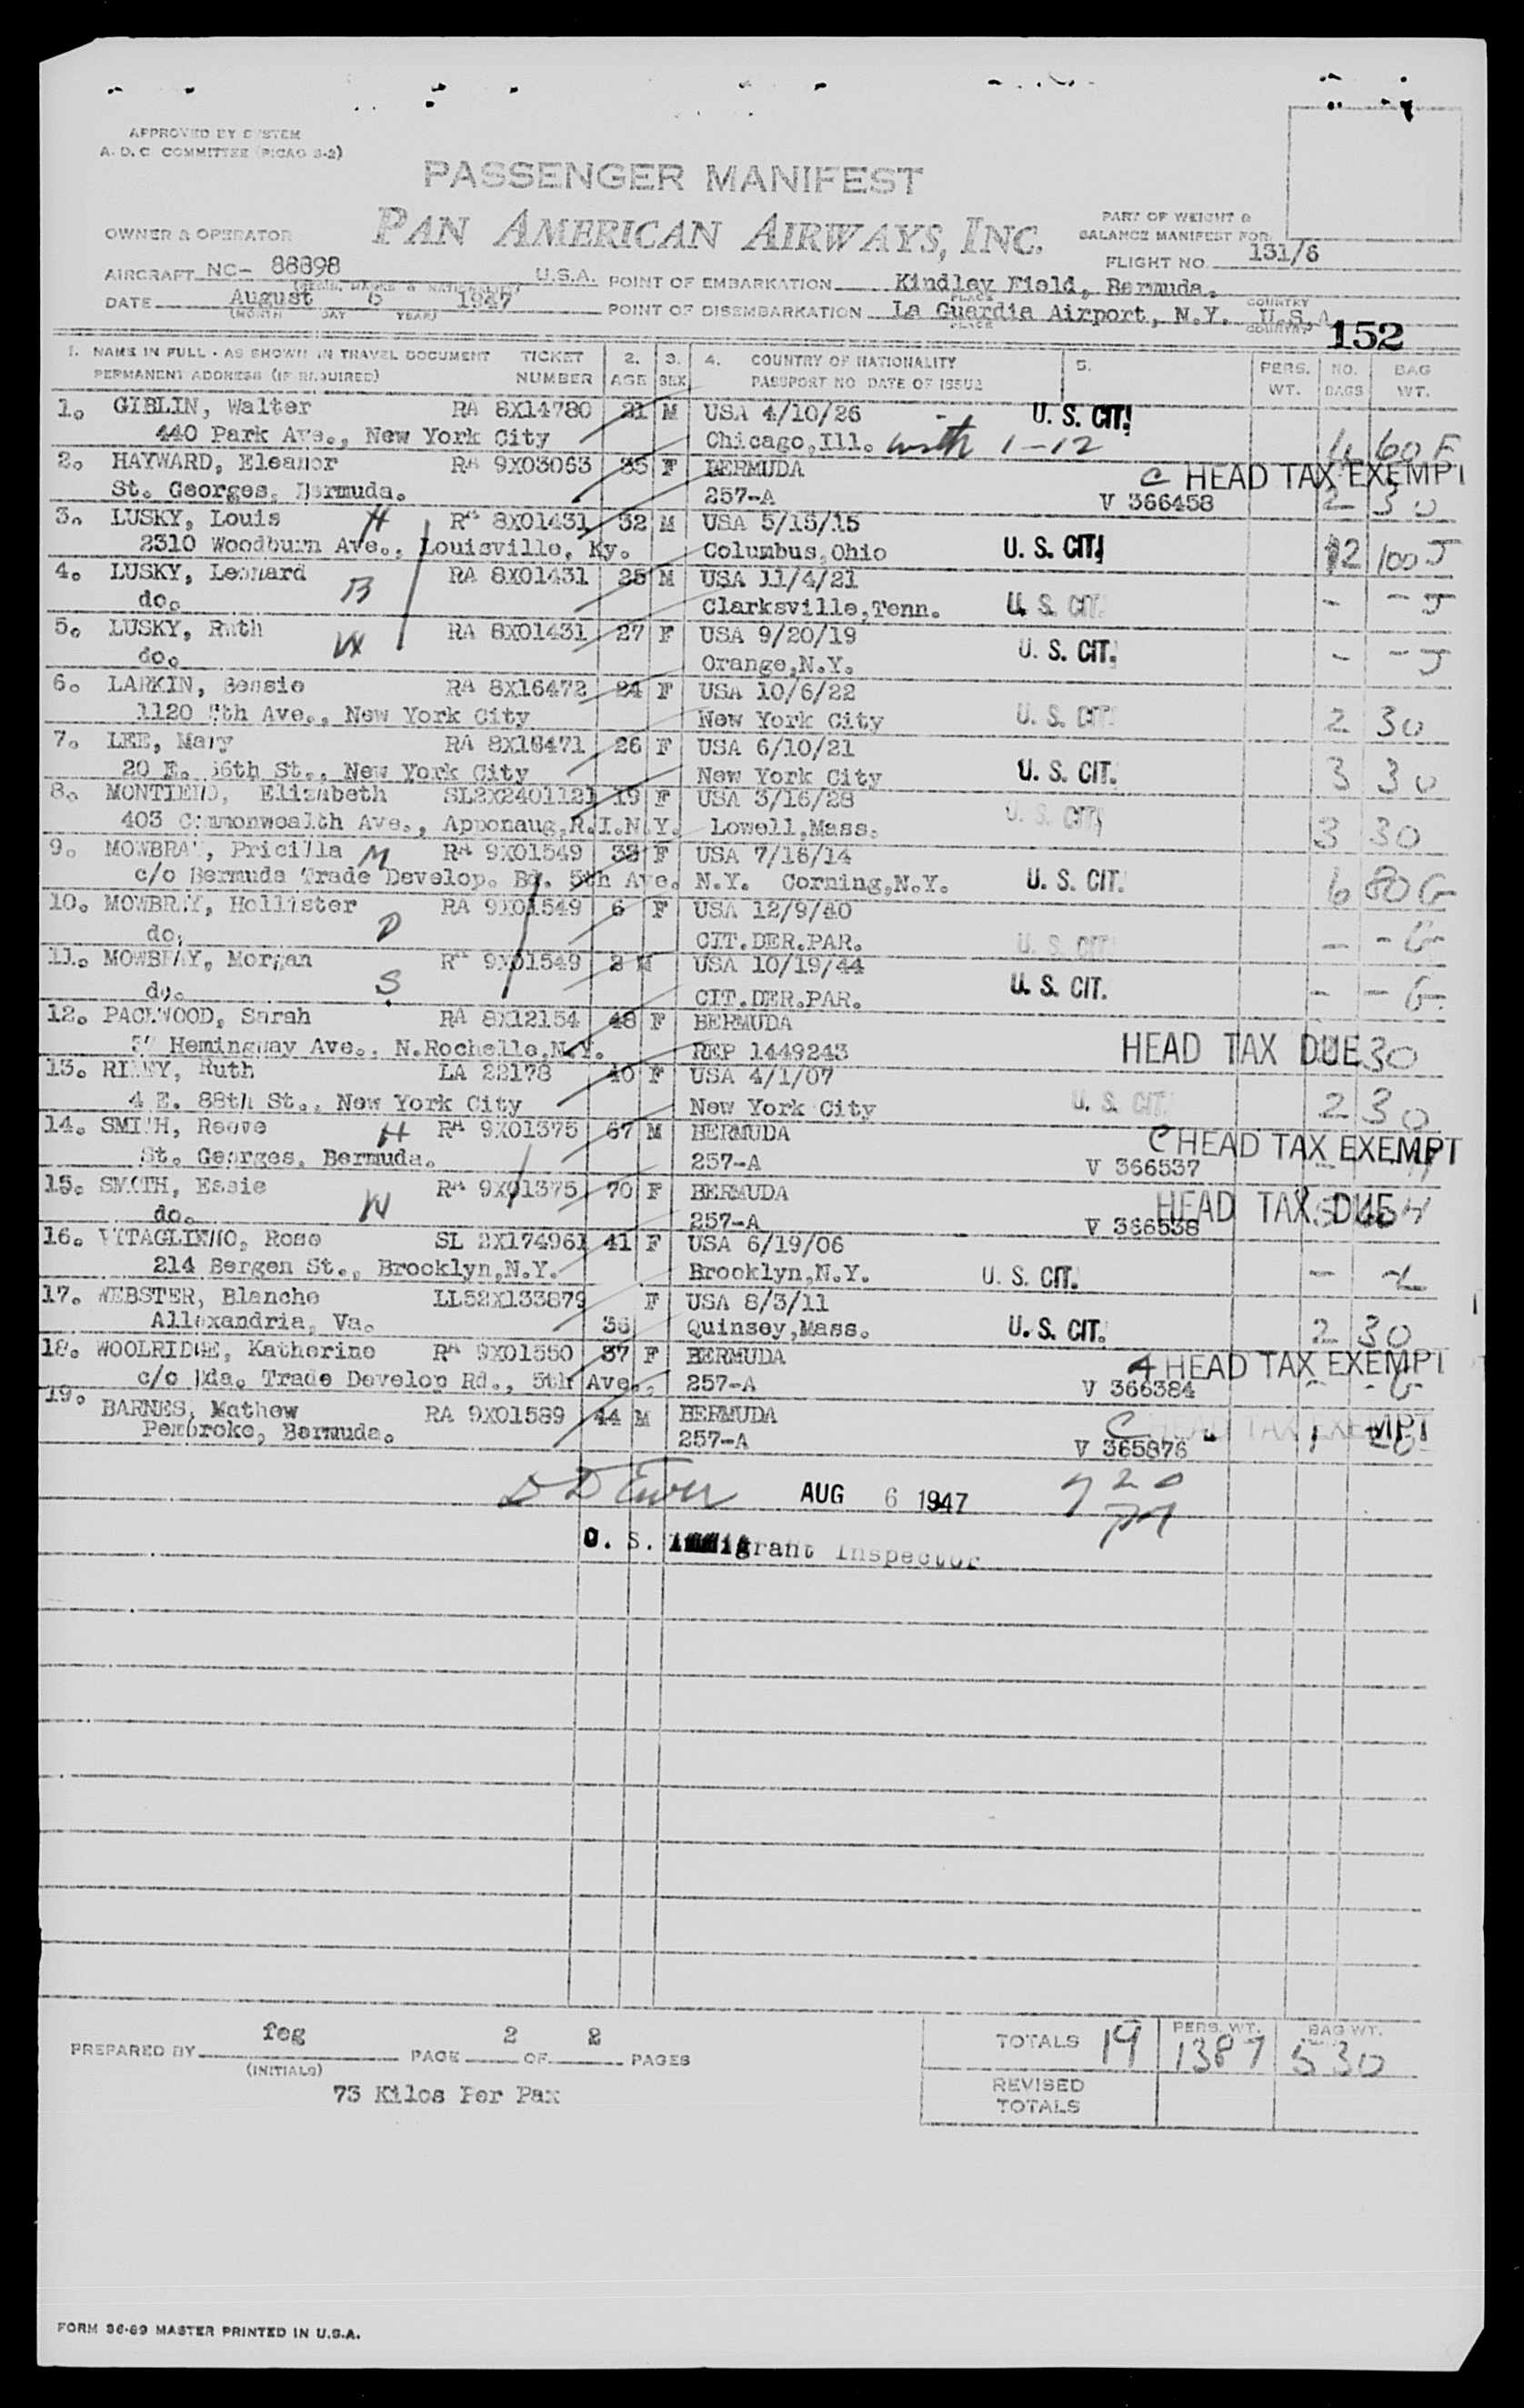 APPROVED BY SYSTEM
A.D.C. COMMITTEE (PICAO S-2)
PASSENGER MANIFEST
OWNER & OPERATOR PAN AMERICAN AIRWAYS, INC.
PART OF WEIGHT &
BALANCE MANIFEST FOR
FLIGHT NO. 131/6
AIRCRAFT NC- 88898 U.S.A. POINT OF EMBARKATION Kindley Field, Bermuda.
DATE August 6 1947 POINT OF DISEMBARKATION La Guardia Airport, N.Y. U.S.A.
(MONTH DAY YEAR) PLACE COUNTRY
152
1. NAME IN FULL - AS SHOWN IN TRAVEL DOCUMENT TICKET 2. 3. 4. COUNTRY OF NATIONALITY 5. PERS. NO. BAG
PERMANENT ADDRESS (IF REQUIRED) NUMBER AGE SEX PASSPORT NO DATE OF ISSUE WT. BAGS WT.
1. GIBLIN, Walter RA 8X14780 21 M USA 4/10/26 U. S. CIT.
440 Park Ave., New York City Chicago,Ill. with 1-12 4 60 F
2. HAYWARD, Eleanor RA 9X03063 35 F BERMUDA C HEAD TAX EXEMPT
St. Georges, Bermuda. 257-A V 366458 2 30
3. LUSKY, Louis H RA 8X01431 32 M USA 5/15/15
2310 Woodburn Ave., Louisville, Ky. Columbus,Ohio U. S. CIT. 12 100 J
4. LUSKY, Leonard B RA 8X01431 25 M USA 11/4/21
do. Clarksville,Tenn. U. S. CIT. - - J
5. LUSKY, Ruth W RA 8X01431 27 F USA 9/20/19
do. Orange,N.Y. U. S. CIT. - - J
6. LARKIN, Bessie RA 8X16472 24 F USA 10/6/22
1120 5th Ave., New York City New York City U. S. CIT. 2 30
7. LEE, Mary RA 8X16471 26 F USA 6/10/21
20 E. 56th St., New York City New York City U. S. CIT. 3 30
8. Elizabeth SL2X2401121 19 F USA 3/16/28
403 Commonwealth Ave., Apponaug,R.I.N.Y. Lowell,Mass. U. S. CIT. 3 30
9. MOWBRAY, Pricilla M RA 9X01549 33 F USA 7/18/14
c/o Bermuda Trade Develop. Bd. 5th Ave. N.Y. Corning,N.Y. U. S. CIT. 6 80 G
10. MOWBRAY, Hollister D RA 9X01549 6 F USA 12/9/40
do. CIT.DER.PAR. U. S. CIT. - - G
11. MOWBRAY, Morgan S RA 9X01549 2 M USA 10/19/44
do. CIT.DER.PAR. U. S. CIT. - - G
12. PACKWOOD, Sarah RA 8X12154 48 F BERMUDA
Hemingway Ave., N.Rochelle,N.Y. REP 1449243 HEAD TAX DUE 30
13. Ruth LA 22178 40 F USA 4/1/07
4 E. 88th St., New York City New York City U. S. CIT. 2 30
14. SMITH, Reeve H RA 9X01375 67 M BERMUDA C HEAD TAX EXEMPT
St. Georges, Bermuda. 257-A V 366537
15. SMITH, Essie W RA 9X01375 70 F BERMUDA HEAD TAX DUE
do. 257-A V 366538
16. Rose SL 2X174961 41 F USA 6/19/06
214 Bergen St., Brooklyn,N.Y. Brooklyn,N.Y. U. S. CIT. -
17. WEBSTER, Blanche LL52X133879 F USA 8/3/11
Allexandria, Va. 36 Quinsey,Mass. U. S. CIT. 2 30
18. WOOLRIDGE, Katherine RA 9X01550 37 F BERMUDA 4 HEAD TAX EXEMPT
c/o Bda. Trade Develop Rd., 5th Ave., 257-A V 366384 - - G
19. BARNES, Mathew RA 9X01589 44 M BERMUDA C HEAD TAX EXEMPT
Pembroke, Bermuda. 257-A V 365876 1
AUG 6 1947 720 PM
U. S. Immigrant Inspector
PREPARED BY feg PAGE 2 OF 2 PAGES
(INITIALS)
73 Kilos Per Pax
TOTALS 19 PERS. WT. 1387 BAG WT. 530
REVISED
TOTALS
FORM 36-69 MASTER PRINTED IN U.S.A.